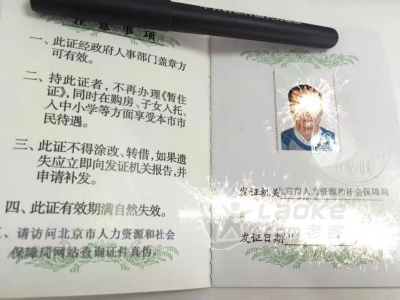 注意事项
一、此证经政府人事部门盖章方
可有效。
二、持此证者，不再办理《暂住
证》，同时在购房、子女入托、
入中小学等方面享受本市市
民待遇。
三、此证不得涂改、转借，如果遗
失应立即向发证机关报告，并
申请补发。
四、此证有效期满自然失效。
五、请访问北京市人力资源和社会
保障局网站查询证件真伪。
发证机关北京市人力资源和社会保障局
发证日期
Laoke
老客